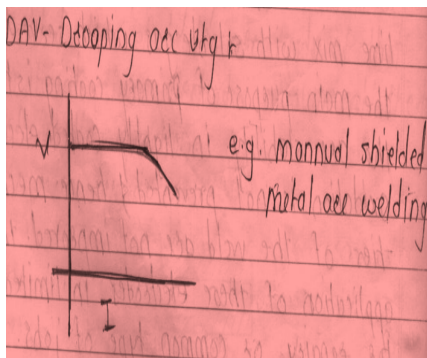 DAV- Drooping arc vtg
V
e.g. mannual shielded
metal arc welding
I